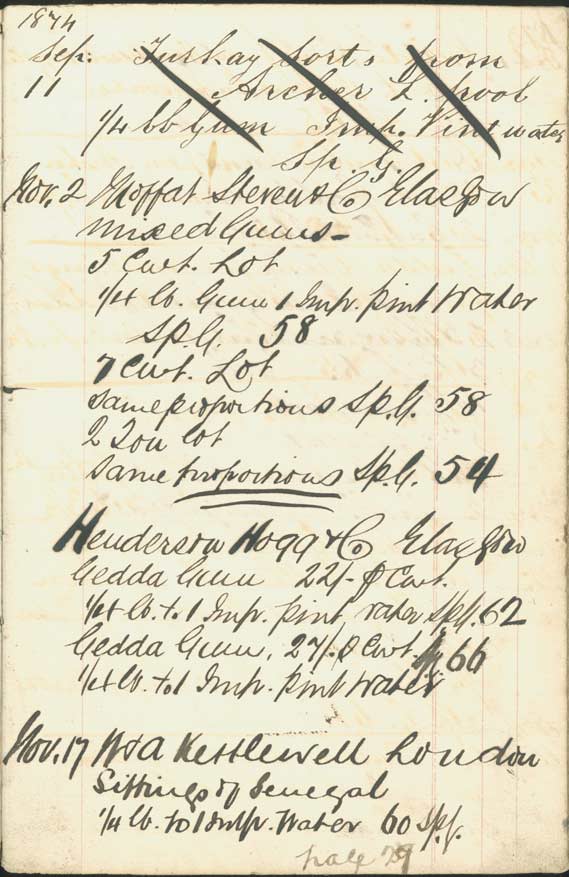 1874
Sep. Turkay Sorts from
11 Archer L. pool
1/4 lb Gum Imp. Pint water
Sp. G.
Nov. 2 Moffat Steven & Co Glasgow
mixed Gums -
5 Cwt. Lot
1/4 lb. Gum 1 Imp. pint Water
Sp. G. 58
7 Cwt. Lot
same proportions Sp. G. 58
2 Ton Lot
same proportions Sp. G. 54
Henderson Hogg & Co Glasgow
Gedda Gum 22/- Cwt.
1/4 lb. to 1 Imp. pint, water Sp. G. 62
Gedda Gum, 27/- Cwt. 66
1/4 lb. to 1 Imp. pint Water
Nov. 17 W & A Kettlewell London
Siftings of Senegal
1/4 lb. to 1 Imp. Water 60 Sp. g.